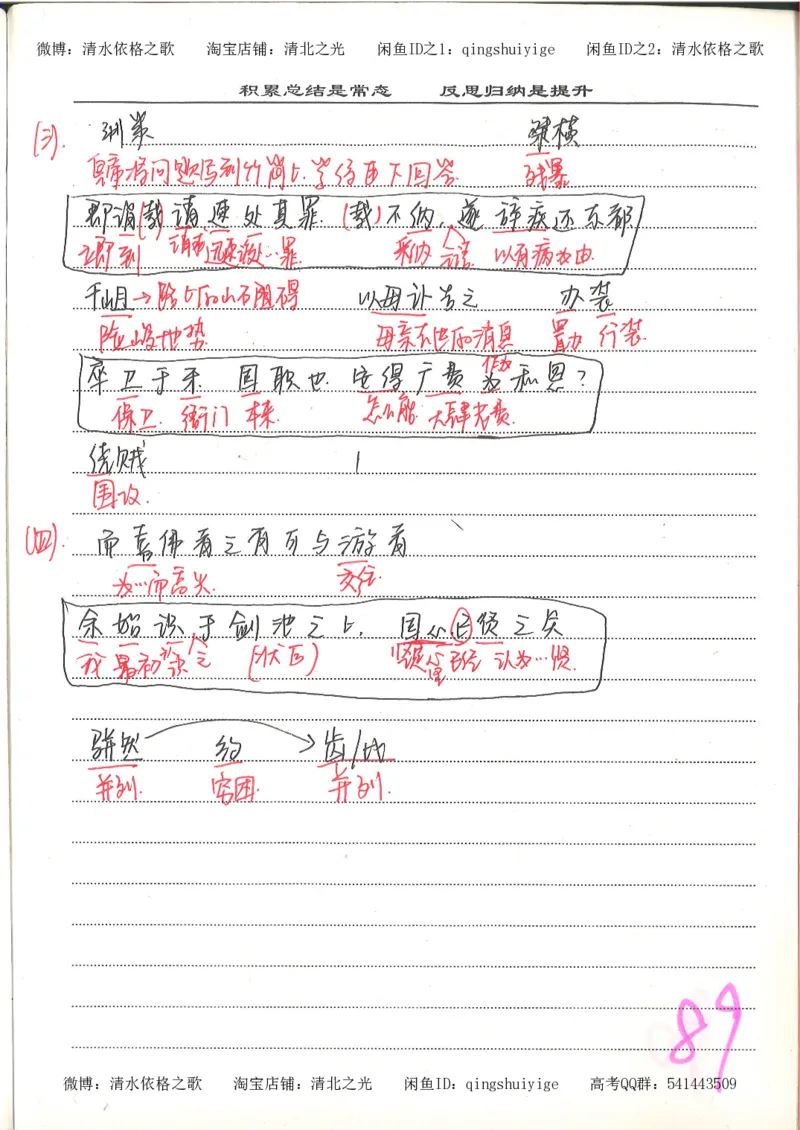 微博：清水依格之歌 淘宝店铺：清北之光 闲鱼ID之1：qingshuiyige 闲鱼ID之2：清水依格之歌
积累总结是常态 反思归纳是提升
(三). 对策 桀横
皇帝将问题写到竹简上,学徒由下回答. 残暴
即谓(载)请速处其罪. (载)不纳, 遂辞疾还京都.
立即到 请求迅速处…罪. 采纳 言 以有病为由.
岨→路上的山石阻碍 以母讣告之 办装
险峻地势 母亲去世的消息 置办 行装.
卒卫于牙 固职也. 安得广费为私恩?
作为
保卫. 衙门 本来. 怎么能 大肆花费.
绕贼
围攻.
(四). 而喜佛者之有可与游者
为…而高兴. 交往.
余始识于剑池之上, 固心已彼之矣
我 最初 余 之 (状后) 心里 已经 认为…
骈然 约 齿/地
并列. 穷困. 并列.
89
微博：清水依格之歌 淘宝店铺：清北之光 闲鱼ID：qingshuiyige 高考QQ群：541443509